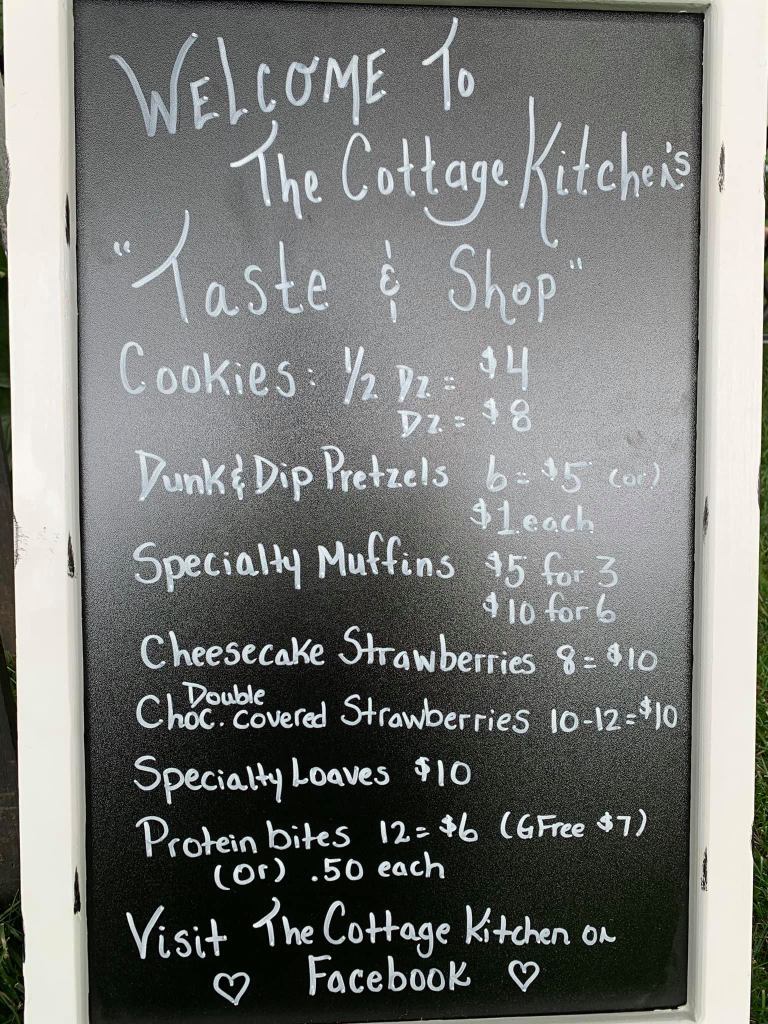 WELCOME To
The Cottage Kitchen's
"Taste & Shop"
Cookies: 1/2 Dz = $4
Dz = $8
Dunk & Dip Pretzels 6 = $5 (or)
$1 each
Specialty Muffins $5 for 3
$10 for 6
Cheesecake Strawberries 8 = $10
Double
Choc. covered Strawberries 10-12 = $10
Specialty Loaves $10
Protein bites 12 = $6 (GFree $7)
(or) .50 each
Visit The Cottage Kitchen on
♡ Facebook ♡